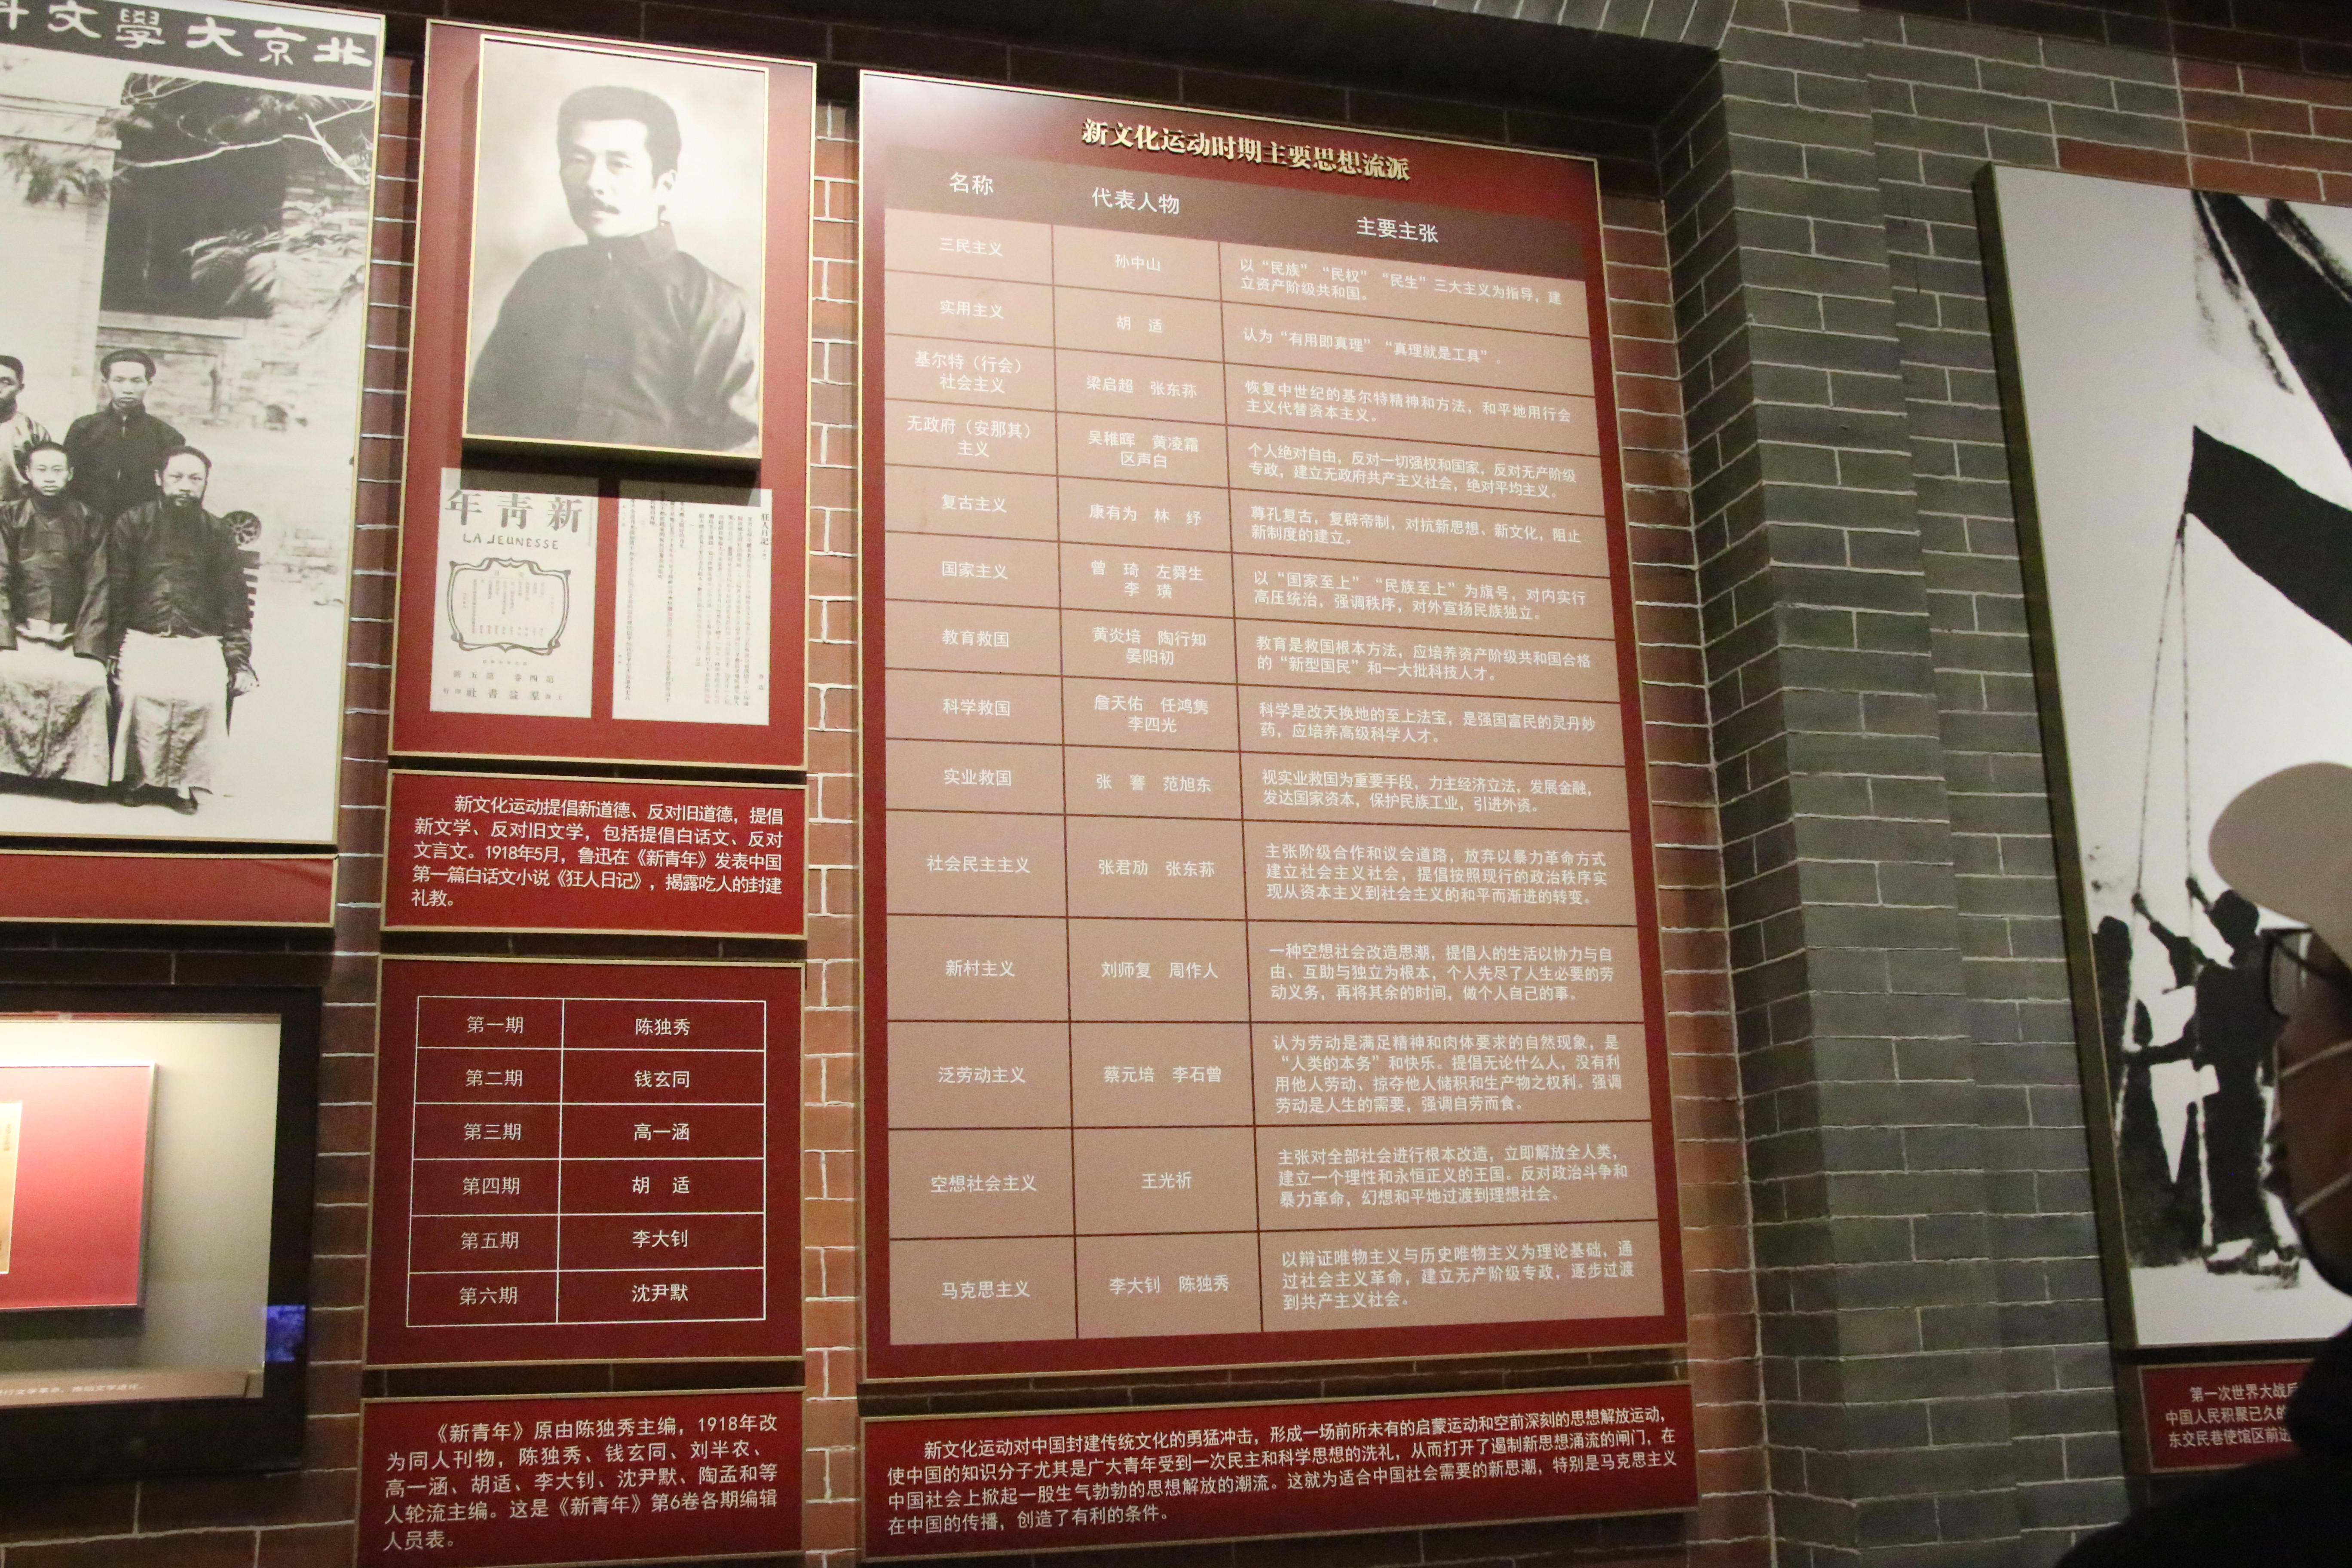 北京大學文科
新青年
LA JEUNESSE
第四卷 第五號
上海 羣益書社 印行
狂人日記
新文化运动提倡新道德、反对旧道德，提倡
新文学、反对旧文学，包括提倡白话文、反对
文言文。1918年5月，鲁迅在《新青年》发表中国
第一篇白话文小说《狂人日记》，揭露吃人的封建
礼教。
第一期 陈独秀
第二期 钱玄同
第三期 高一涵
第四期 胡 适
第五期 李大钊
第六期 沈尹默
《新青年》原由陈独秀主编，1918年改
为同人刊物，陈独秀、钱玄同、刘半农、
高一涵、胡适、李大钊、沈尹默、陶孟和等
人轮流主编。这是《新青年》第6卷各期编辑
人员表。
新文化运动时期主要思想流派
名称 代表人物 主要主张
三民主义 孙中山
以“民族”“民权”“民生”三大主义为指导，建
立资产阶级共和国。
实用主义 胡 适 认为“有用即真理”“真理就是工具”。
基尔特（行会）
社会主义
梁启超 张东荪
恢复中世纪的基尔特精神和方法，和平地用行会
主义代替资本主义。
无政府（安那其）
主义
吴稚晖 黄凌霜
区声白
个人绝对自由，反对一切强权和国家，反对无产阶级
专政，建立无政府共产主义社会，绝对平均主义。
复古主义 康有为 林 纾
尊孔复古，复辟帝制，对抗新思想、新文化，阻止
新制度的建立。
国家主义
曾 琦 左舜生
李 璜
以“国家至上”“民族至上”为旗号，对内实行
高压统治，强调秩序，对外宣扬民族独立。
教育救国
黄炎培 陶行知
晏阳初
教育是救国根本方法，应培养资产阶级共和国合格
的“新型国民”和一大批科技人才。
科学救国
詹天佑 任鸿隽
李四光
科学是改天换地的至上法宝，是强国富民的灵丹妙
药，应培养高级科学人才。
实业救国 张 謇 范旭东
视实业救国为重要手段，力主经济立法，发展金融，
发达国家资本，保护民族工业，引进外资。
社会民主主义 张君劢 张东荪
主张阶级合作和议会道路，放弃以暴力革命方式
建立社会主义社会，提倡按照现行的政治秩序实
现从资本主义到社会主义的和平而渐进的转变。
新村主义 刘师复 周作人
一种空想社会改造思潮，提倡人的生活以协力与自
由、互助与独立为根本，个人先尽了人生必要的劳
动义务，再将其余的时间，做个人自己的事。
泛劳动主义 蔡元培 李石曾
认为劳动是满足精神和肉体要求的自然现象，是
“人类的本务”和快乐。提倡无论什么人，没有利
用他人劳动、掠夺他人储积和生产物之权利。强调
劳动是人生的需要，强调自劳而食。
空想社会主义 王光祈
主张对全部社会进行根本改造，立即解放全人类，
建立一个理性和永恒正义的王国。反对政治斗争和
暴力革命，幻想和平地过渡到理想社会。
马克思主义 李大钊 陈独秀
以辩证唯物主义与历史唯物主义为理论基础，通
过社会主义革命，建立无产阶级专政，逐步过渡
到共产主义社会。
新文化运动对中国封建传统文化的勇猛冲击，形成一场前所未有的启蒙运动和空前深刻的思想解放运动，
使中国的知识分子尤其是广大青年受到一次民主和科学思想的洗礼，从而打开了遏制新思想涌流的闸门，在
中国社会上掀起一股生气勃勃的思想解放的潮流。这就为适合中国社会需要的新思潮，特别是马克思主义
在中国的传播，创造了有利的条件。
第一次世界大战后
中国人民积聚已久的
东交民巷使馆区前进